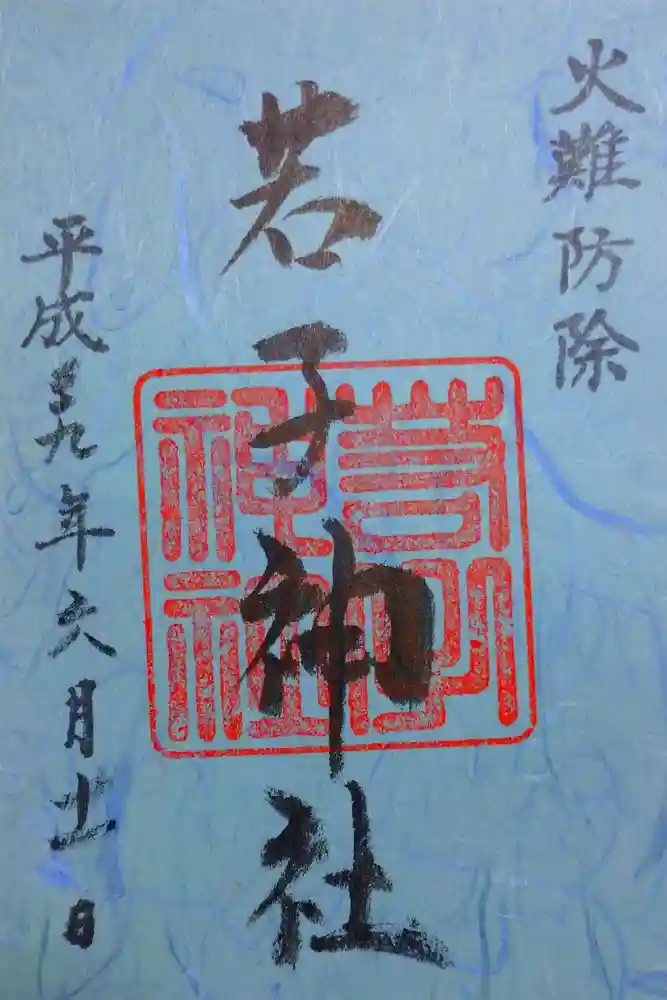 火難防除
若子神社
若子神社
平成二十九年六月十一日